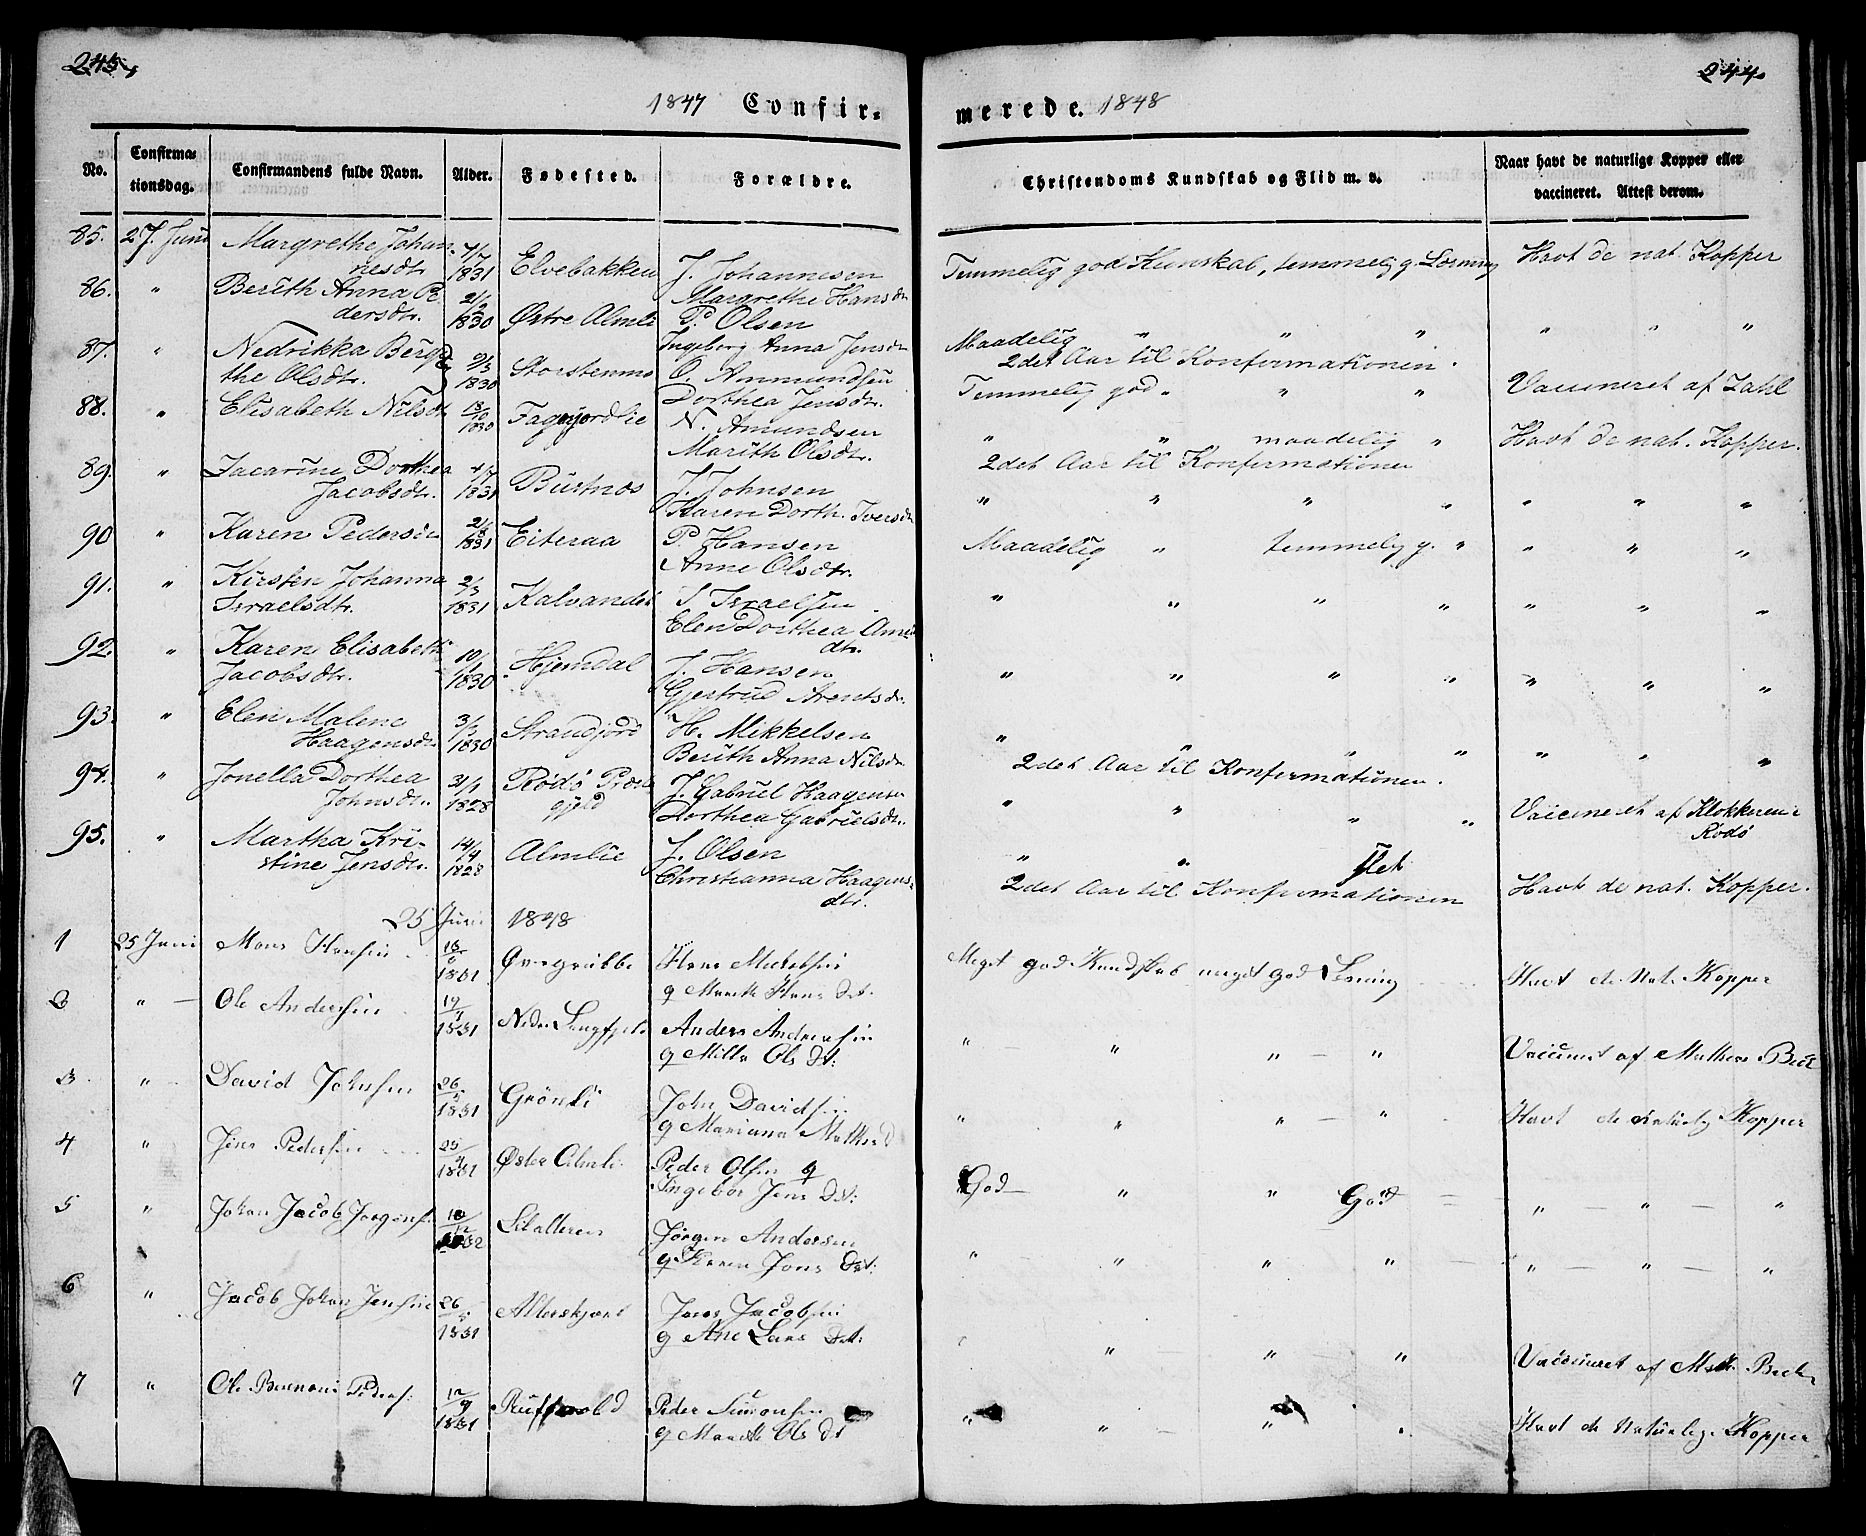 243,
244.
1847 Confir-
merede. 1848
No.
Confirma-
tionsdag.
Confirmandens fulde Navn.
Alder.
Fødested.
Forældre.
Christendoms Kundskab og Flid m. v.
Naar havt de naturlige Kopper eller
vaccineret. Attest derom.
85. 27. Juni Margrethe Johan-
nesdtr. 4/7 1831 Elvebakken J. Johannesen
Margrethe Hansdr
Temmelig god Kunskab, temmelig g. Læsning Havt de nat. Kopper
86. " Berith Anna Pe
dersdtr. 21/2 1830 Østre Almli P. Olsen
Ingeborg Anna Jensdr
" " " " " "
87. " Nedrikka Bergit
the Olsdtr. 9/3 1830 Storstenmo O. Ammundsen
Dorthea Jensdtr.
Maadelig
2det Aar til Konfermationen.
Temmelig god " " " Vaccineret af Zahl
88. " Elisabeth Nilsdt 13/10 1830 Fagerjordlie N. Amundsen
Marith Olsdtr.
" " maadelig " Havt de nat. Kopper.
2det Aar til Konfermationen
89. " Zacarine Dorthea
Jacobsdtr. 4/7 1831 Bustnes J. Johnsen
Karen Dorth. Iversdr
" " " " " " "
90 " Karen Pedersdr 21/8 1831 Eiteraa P. Hansen
Anne Olsdtr.
Maadelig " temmelig g. " " " "
91. " Kirsten Johanna
Israelsdtr. 2/3 1831 Kalvandet I Israelsen
Elen Dorthea Arne
dtr.
" " " " " " "
92. " Karen Elisabeth
Jacobsdtr. 10/1 1830 Hjemdal J. Hansen
Gjertrud Arentsdr.
" " " " " " "
93. " Elen Malene
Haagensdr. 3/1 1830 Strandjord H. Mikkelsen
Berith Anna Nilsdr.
" " " " " " "
2det Aar til Konfermationen.
94. " Jonella Dorthea
Johnsdtr. 31/1 1828 Rødø Præste
gjeld J. Gabriel Haagensen
Dorthea Gabrielsdr.
" " " " Vaccineret af Klokkeren i
Rødø
95. " Martha Kri-
stine Jensdtr. 14/4 1828 Almlie J. Olsen
Christianna Haagens-
dtr.
" " slet
2det Aar til Konfermationen Havt de nat. Kopper.
25 Juni 1848
1 25 Juni Mons Hansen 1831 Øvregrubbe Hans Mickelsen
g Marith Hans Dat.
Meget god Kundskab meget god Læsning Havt de Nat. Kopper
2 " Ole Andersen 19/4 1831 Nedre Langfjeld Anders Andersen
g Mille Ols Dt:
" " " " Vaccineret af Mathias Beck
3 " David Johnsen 26 1831 Grönli John Davidsen
g Mariana Mathisd
" " " " Havt de naturlig Kopper
4 " Jens Pedersen 25/4 1831 Øster Almli Peder Olsen g
Ingebor Jens Dt:
God " " God " " "
5 " Johan Jacob Jørgens. 18/12 1832 Skalleren Jörgen Andersen
g Karen Jons Dat:
" " " " " " "
6 " Jacob Johan Jensen 26 1831 Alterskjæret Jens Jacobsen
g Ane Lars Dat:
" " " " Vaccineret af Math. Beck
7 " Ole Benoni Peders: 12/9 1831 Ruffsvold Peder Simonsen
g Marith Ols Dt
" " " Havt de Naturlige Kopper